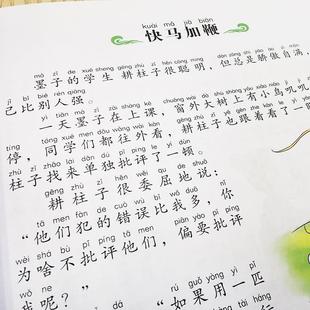 kuài mǎ jiā biān
快马加鞭
mò zǐ de xué sheng gēng zhù zǐ hěn cōng míng dàn zǒng shì jiāo ào zì mǎn
墨子的学生耕柱子很聪明，但总是骄傲自满，
jǐ bǐ bié rén qiáng
己比别人强。
yì tiān mò zǐ zài shàng kè
一天墨子在上课，窗外大树上有小鸟叽叽
tíng tóng xué men dōu wǎng wài kàn gēng zhù zǐ yě gēn zhe kàn le
停，同学们都往外看，耕柱子也跟着看了一
zhù zǐ zhǎo lái dān dú pī píng le yí dùn
柱子找来单独批评了一顿。
gēng zhù zǐ hěn wěi qu de shuō
耕柱子很委屈地说：
tā men fàn de cuò wù bǐ wǒ duō nǐ
“他们犯的错误比我多，你
wèi shá bù pī píng tā men piān yào pī píng
为啥不批评他们，偏要批评
wǒ ne
我呢？” “如果用一匹